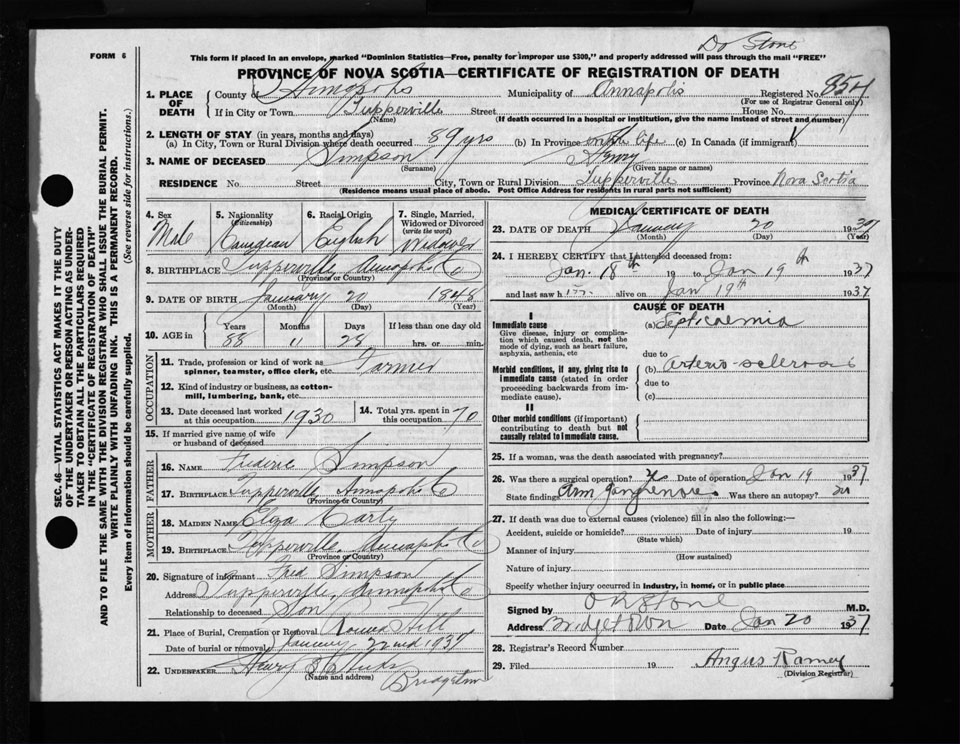 Dr Stone
FORM 6
This form if placed in an envelope, marked "Dominion Statistics—Free, penalty for improper use $300," and properly addressed will pass through the mail "FREE"
PROVINCE OF NOVA SCOTIA—CERTIFICATE OF REGISTRATION OF DEATH
1. PLACE OF DEATH County of Annapolis Municipality of Annapolis Registered No. 854
(For use of Registrar General only)
If in City or Town Tupperville Street House No.
(Name) (If death occurred in a hospital or institution, give the name instead of street and number)
2. LENGTH OF STAY (in years, months and days)
(a) In City, Town or Rural Division where death occurred 89 yrs (b) In Province whole life (c) In Canada (if immigrant)
3. NAME OF DECEASED Simpson Henry
(Surname) (Given name or names)
RESIDENCE No. Street City, Town or Rural Division Tupperville Province Nova Scotia
(Residence means usual place of abode. Post Office Address for residents in rural parts not sufficient)
SEC. 46—VITAL STATISTICS ACT MAKES IT THE DUTY
OF THE UNDERTAKER OR PERSON ACTING AS UNDER-
TAKER TO OBTAIN ALL THE PARTICULARS REQUIRED
IN THE "CERTIFICATE OF REGISTRATION OF DEATH"
AND TO FILE THE SAME WITH THE DIVISION REGISTRAR WHO SHALL ISSUE THE BURIAL PERMIT.
WRITE PLAINLY WITH UNFADING INK. THIS IS A PERMANENT RECORD.
Every item of information should be carefully supplied. (See reverse side for instructions.)
4. Sex Male
5. Nationality (Citizenship) Canadian
6. Racial Origin English
7. Single, Married, Widowed or Divorced (write the word) Widower
8. BIRTHPLACE Tupperville, Annapolis Co
(Province or Country)
9. DATE OF BIRTH January 20 1848
(Month) (Day) (Year)
10. AGE in Years Months Days If less than one day old
88 11 28 hrs. or min.
OCCUPATION
11. Trade, profession or kind of work as spinner, teamster, office clerk, etc. Farmer
12. Kind of industry or business, as cotton-mill, lumbering, bank, etc.
13. Date deceased last worked at this occupation 1930
14. Total yrs. spent in this occupation 70
15. If married give name of wife or husband of deceased
FATHER
16. NAME Simpson
17. BIRTHPLACE Tupperville, Annapolis Co
(Province or Country)
MOTHER
18. MAIDEN NAME Eliza Carty
19. BIRTHPLACE Tupperville, Annapolis Co
(Province or Country)
20. Signature of informant Fred Simpson
Address Tupperville, Annapolis Co
Relationship to deceased Son
21. Place of Burial, Cremation or Removal Round Hill
Date of burial or removal January 22nd 1937
22. UNDERTAKER Henry
(Name and address)
Bridgetown
MEDICAL CERTIFICATE OF DEATH
23. DATE OF DEATH January 20 1937
(Month) (Day) (Year)
24. I HEREBY CERTIFY that I attended deceased from:
Jan. 18th 19 to Jan 19th 1937
and last saw him alive on Jan 19th 1937
CAUSE OF DEATH
I
Immediate cause (a) Septicaemia
Give disease, injury or complication which caused death, not the mode of dying, such as heart failure, asphyxia, asthenia, etc
due to
Morbid conditions, if any, giving rise to immediate cause (stated in order proceeding backwards from immediate cause). (b) Arterio-sclerosis
due to
(c)
II
Other morbid conditions (if important) contributing to death but not causally related to immediate cause.
25. If a woman, was the death associated with pregnancy?
26. Was there a surgical operation? Date of operation Jan 19 1937
State findings Arm gangrenous Was there an autopsy? no
27. If death was due to external causes (violence) fill in also the following:—
Accident, suicide or homicide? Date of injury 19
(State which)
Manner of injury
(How sustained)
Nature of injury
Specify whether injury occurred in industry, in home, or in public place
Signed by O R Stone M.D.
Address Bridgetown Date Jan 20 1937
28. Registrar's Record Number
29. Filed 19 Angus Ramey
(Division Registrar)